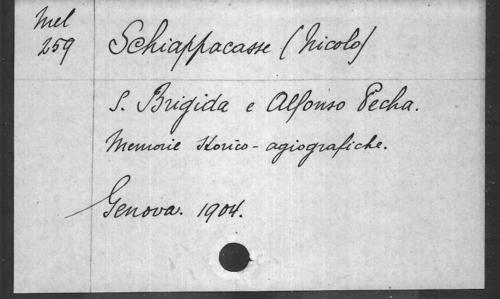 Mel
259
Schiappacasse (Nicolo)
S. Brigida e Alfonso Pecha.
Memorie storico-agiografiche.
Genova. 1904.